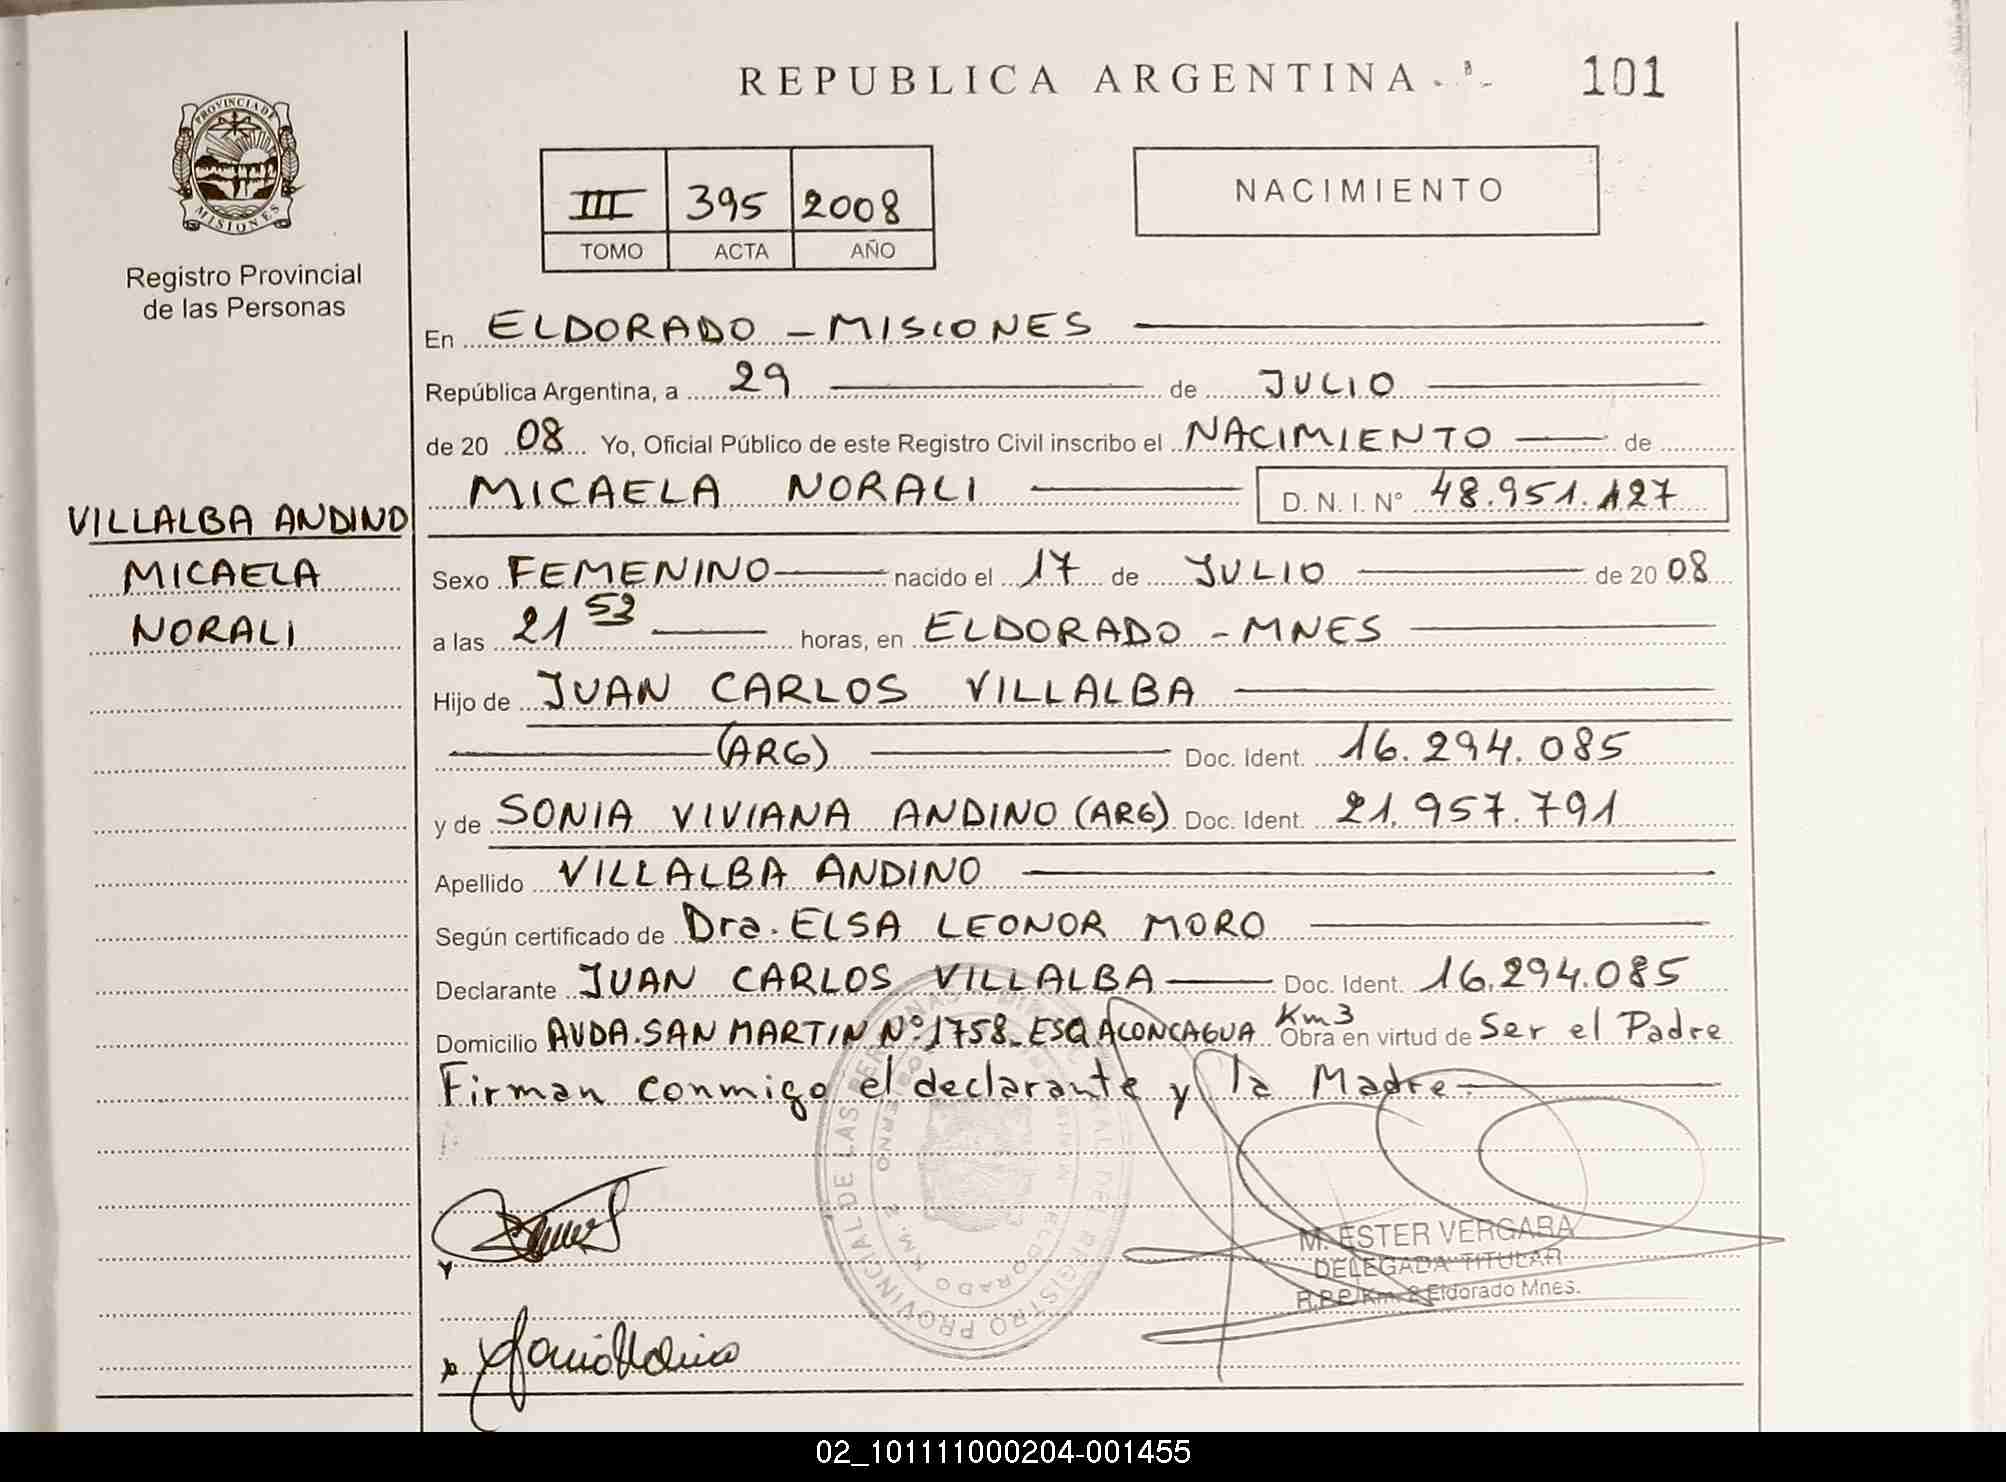 REPUBLICA ARGENTINA
101
PROVINCIA DE MISIONES
Registro Provincial
de las Personas
III 395 2008
TOMO ACTA AÑO
NACIMIENTO
En ELDORADO - MISIONES
República Argentina, a 29 de JULIO
de 20 08 Yo, Oficial Público de este Registro Civil inscribo el NACIMIENTO de
MICAELA NORALI D. N. I. N° 48.951.127
VILLALBA ANDINO
MICAELA
NORALI
Sexo FEMENINO nacido el 17 de JULIO de 20 08
a las 21 53 horas, en ELDORADO - MNES
Hijo de JUAN CARLOS VILLALBA
(ARG) Doc. Ident. 16.294.085
y de SONIA VIVIANA ANDINO (ARG) Doc. Ident. 21.957.791
Apellido VILLALBA ANDINO
Según certificado de Dra. ELSA LEONOR MORO
Declarante JUAN CARLOS VILLALBA Doc. Ident. 16.294.085
Domicilio AVDA. SAN MARTIN N° 1758 - ESQ ACONCAGUA Km3 Obra en virtud de Ser el Padre
Firman conmigo el declarante y la Madre
M. ESTER VERGARA
DELEGADA TITULAR
R.P.P. Km. 2 Eldorado Mnes.
02_101111000204-001455